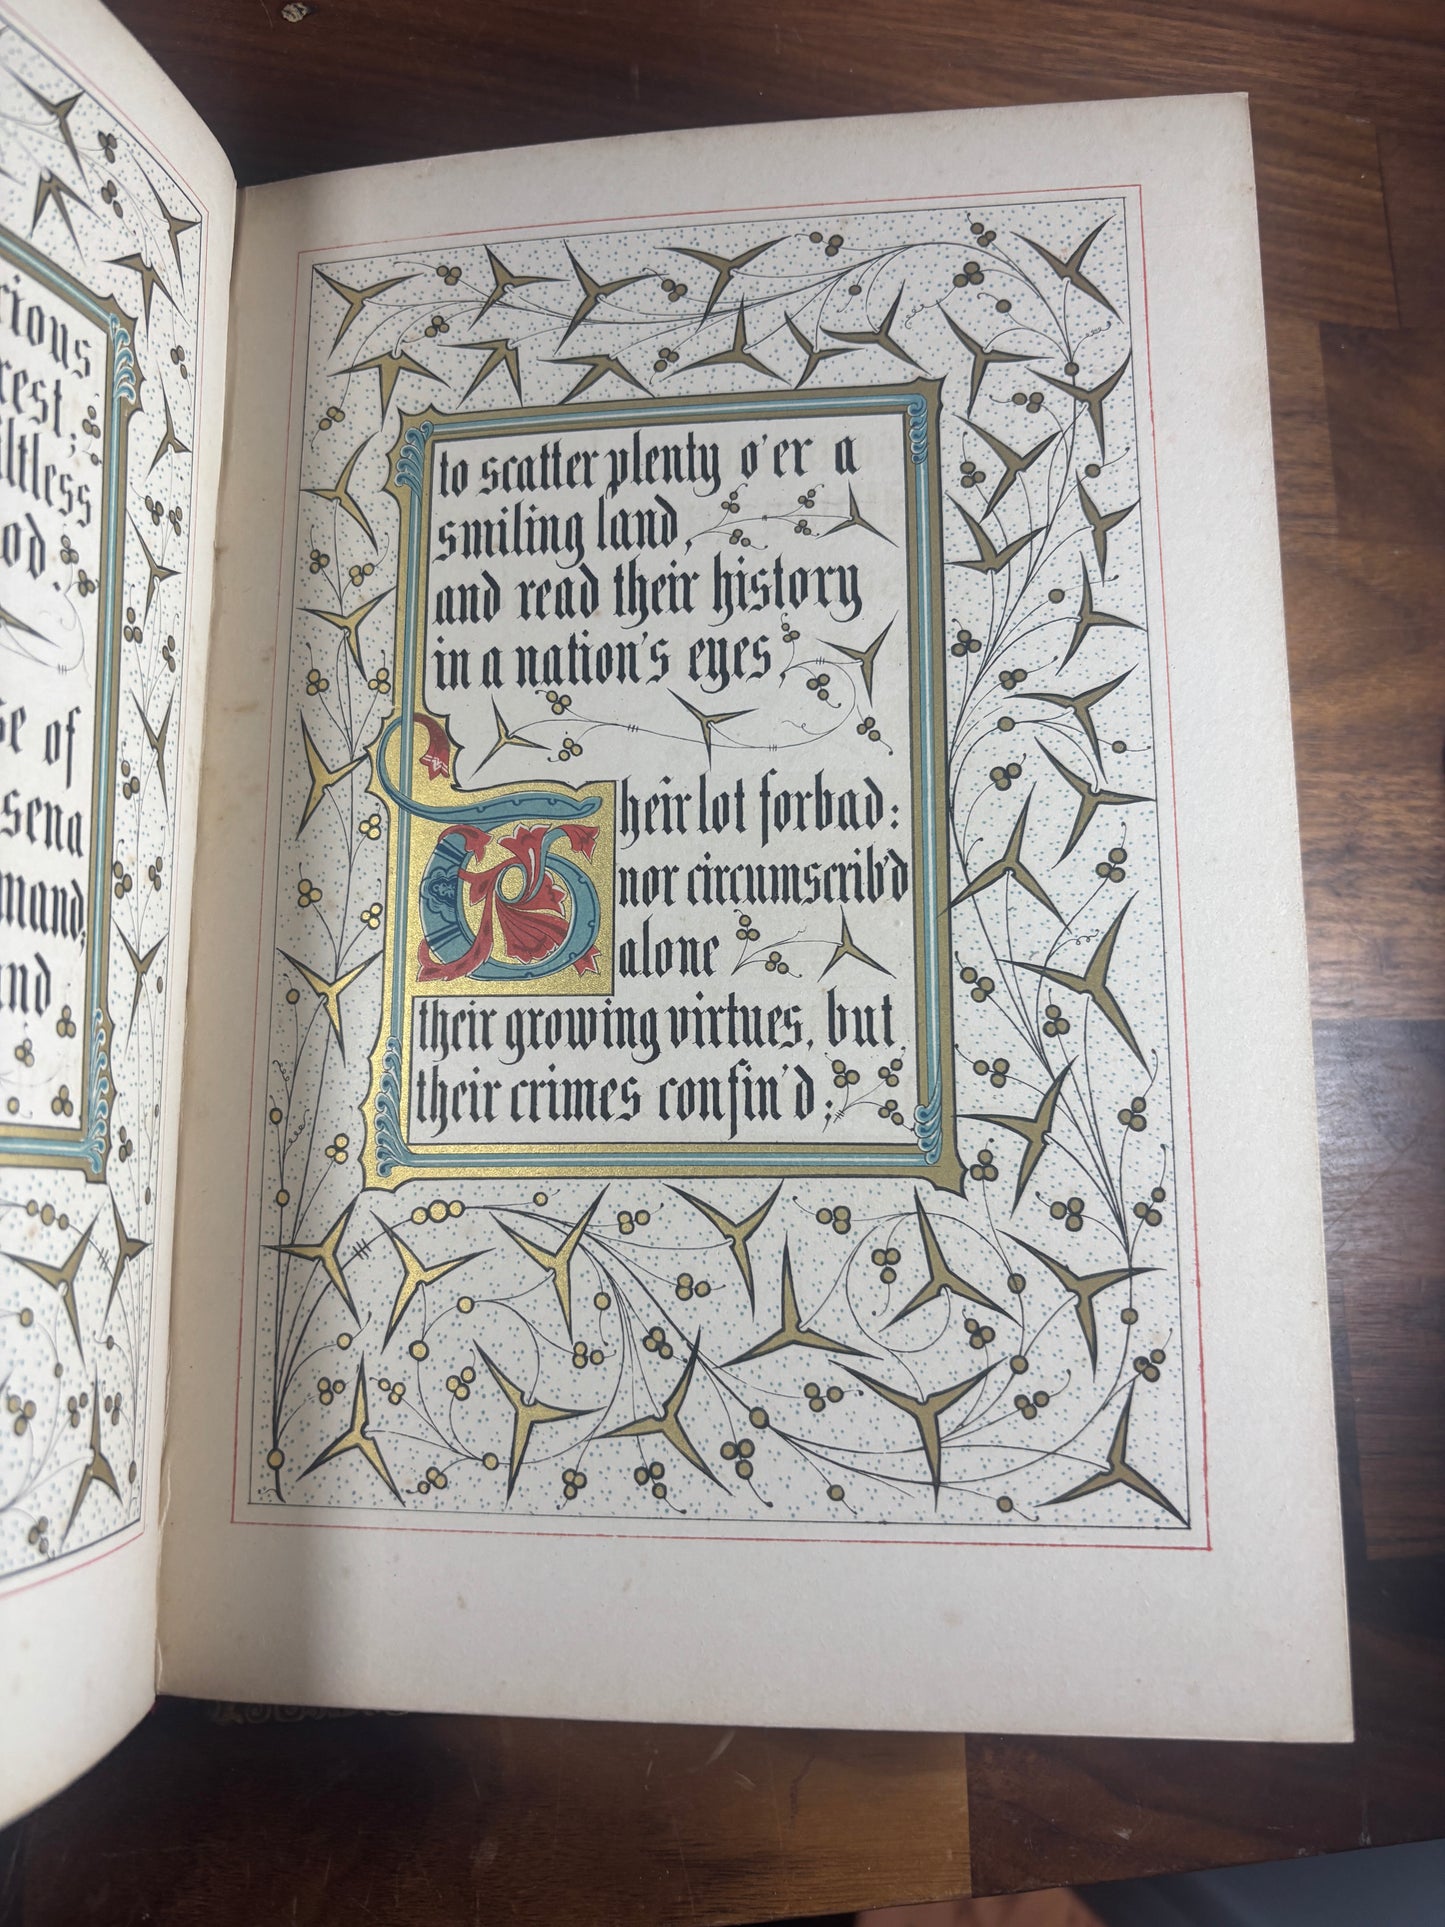 rest;
od.
of
and
to scatter plenty o'er a
smiling land,
and read their history
in a nation's eyes,
Their lot forbad:
nor circumscrib'd
alone
their growing virtues, but
their crimes confin'd;